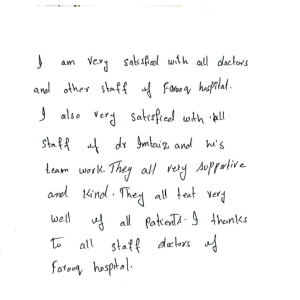 I am very satisfied with all doctors
and other staff of Farooq hospital.
I also very satisfied with all
staff of dr Imtiaz and his
team work. They all very supportive
and kind. They all teat very
well of all patients. I thanks
to all staff doctors of
Farooq hospital.